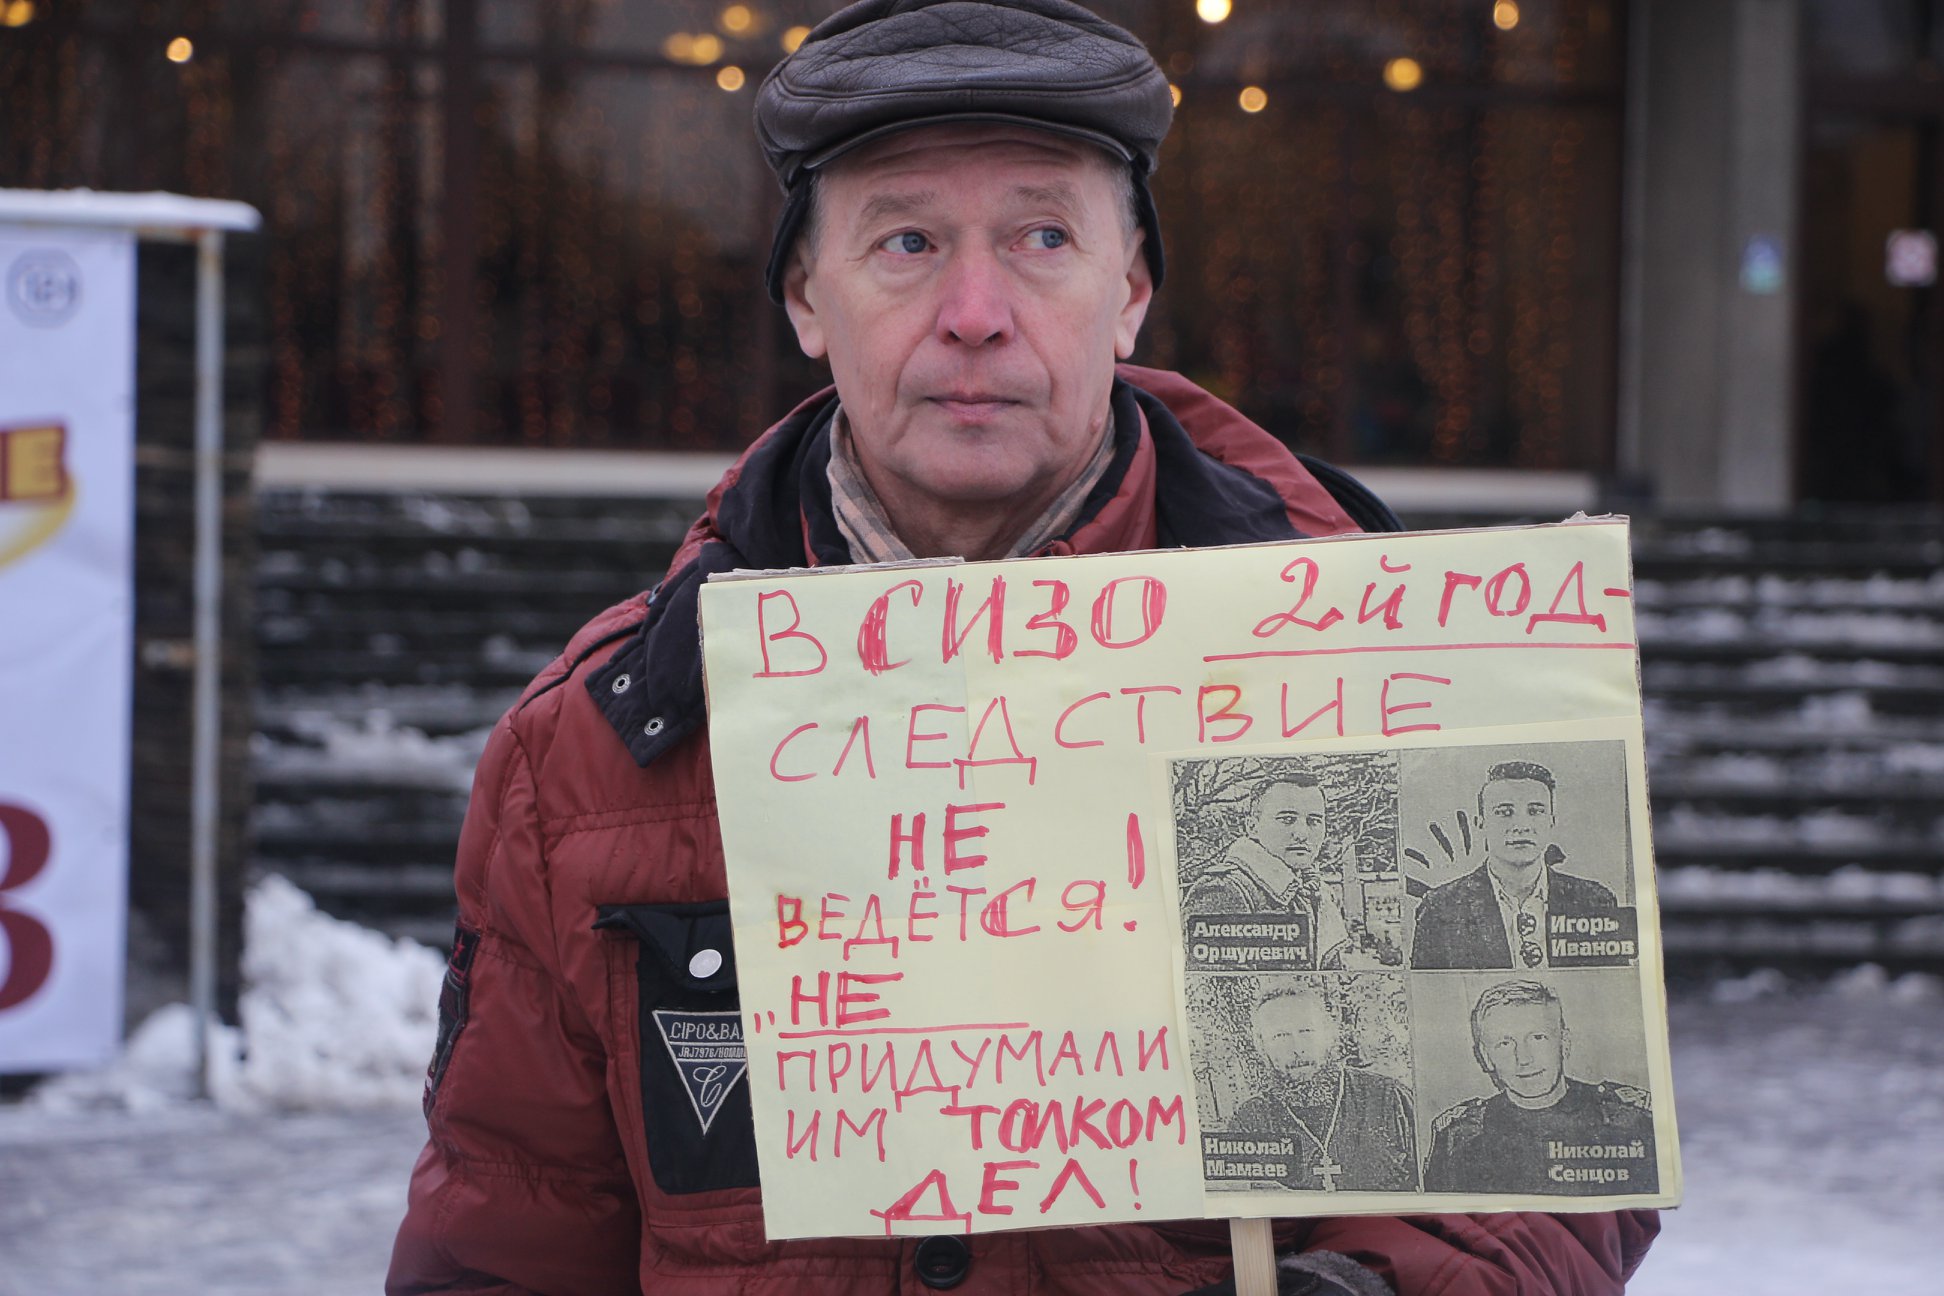 В СИЗО 2-й ГОД-
СЛЕДСТВИЕ
НЕ
ВЕДЁТСЯ!
„НЕ
ПРИДУМАЛИ
ИМ ТОЛКОМ
ДЕЛ!
Александр
Оршулевич
Игорь
Иванов
Николай
Мамаев
Николай
Сенцов
CIPO&BA